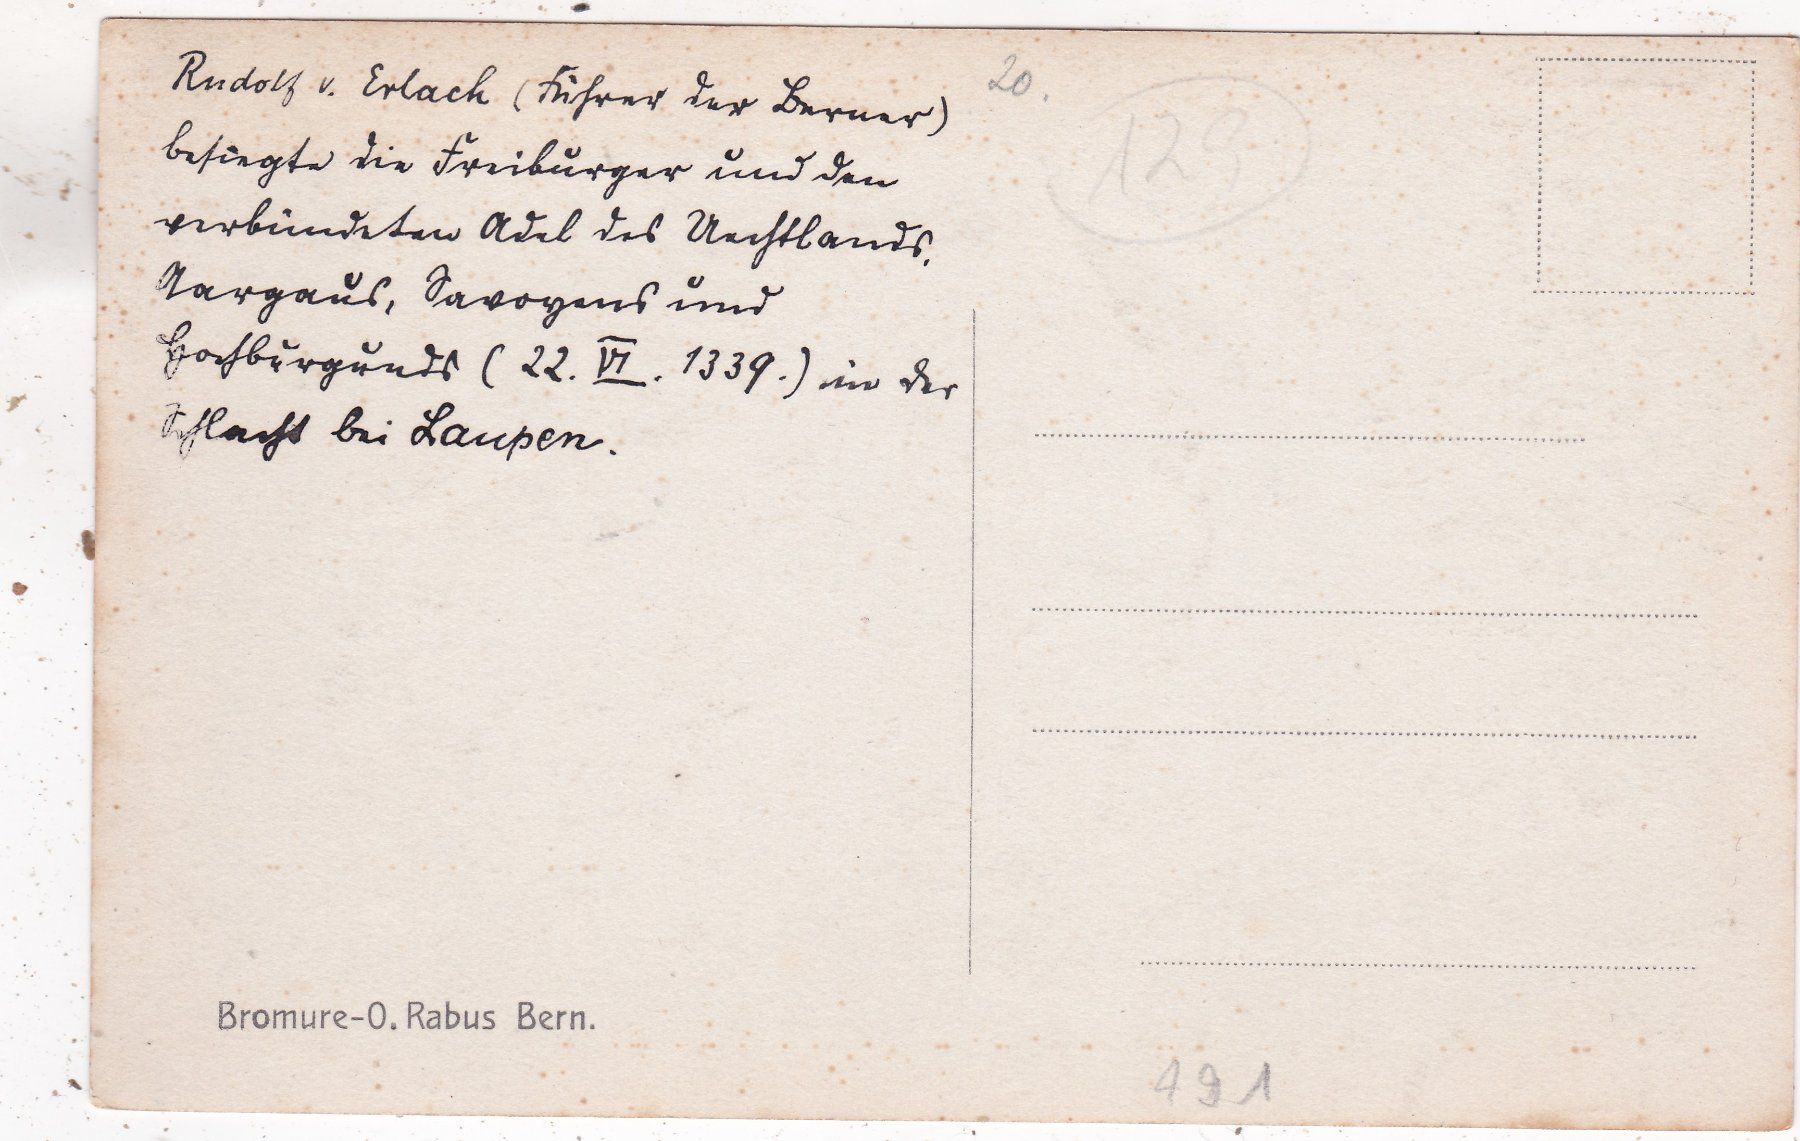 Rudolf v. Erlach (Führer der Berner)
besiegte die Freiburger und den
verbündeten Adel des Uechtlands,
Aargaus, Savoyens und
Hochburgunds (22. VI. 1339.) in der
Schlacht bei Laupen.
20.
129
Bromure-O. Rabus Bern.
491